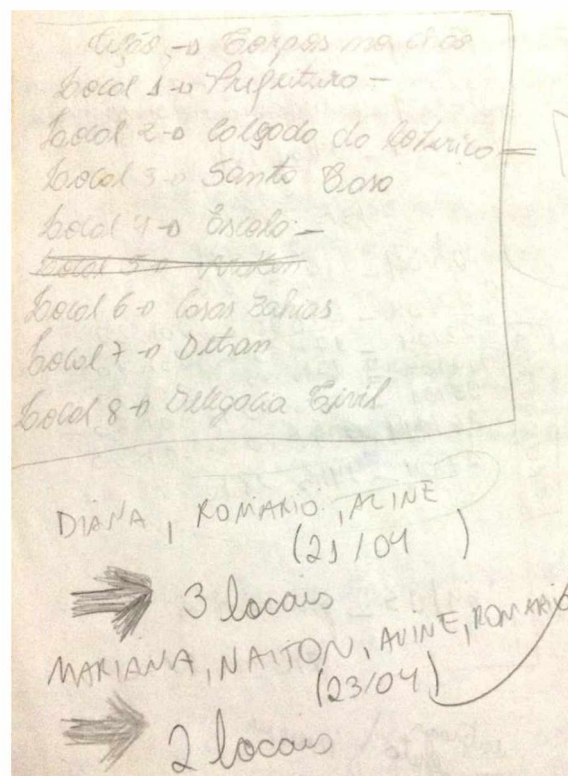 Ação → Corpos no chão
Local 1 → Prefeitura -
Local 2 → Calçada da Lotérica =
Local 3 → Santa Casa
Local 4 → Escola -
Local 5 →
Local 6 → Casas Bahias
Local 7 → Detran
Local 8 → Delegacia Civil
DIANA, ROMARIO, ALINE
(21/04)
3 locais
MARIANA, NAITON, ALINE, ROMARIO
(23/04)
2 locais